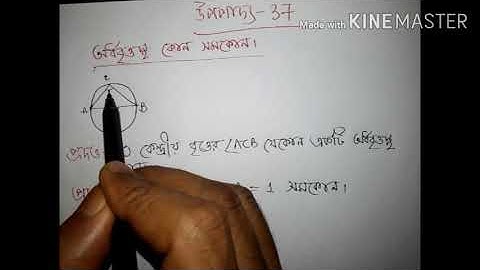 উপপাদ্য-37
Made with KINEMASTER
অর্ধবৃত্তস্থ কোন সমকোন।
c
A B
প্রদত্ত O কেন্দ্রীয় বৃত্তের ∠ACB যেকোন একটি অর্ধবৃত্তস্থ
= 1 সমকোন।